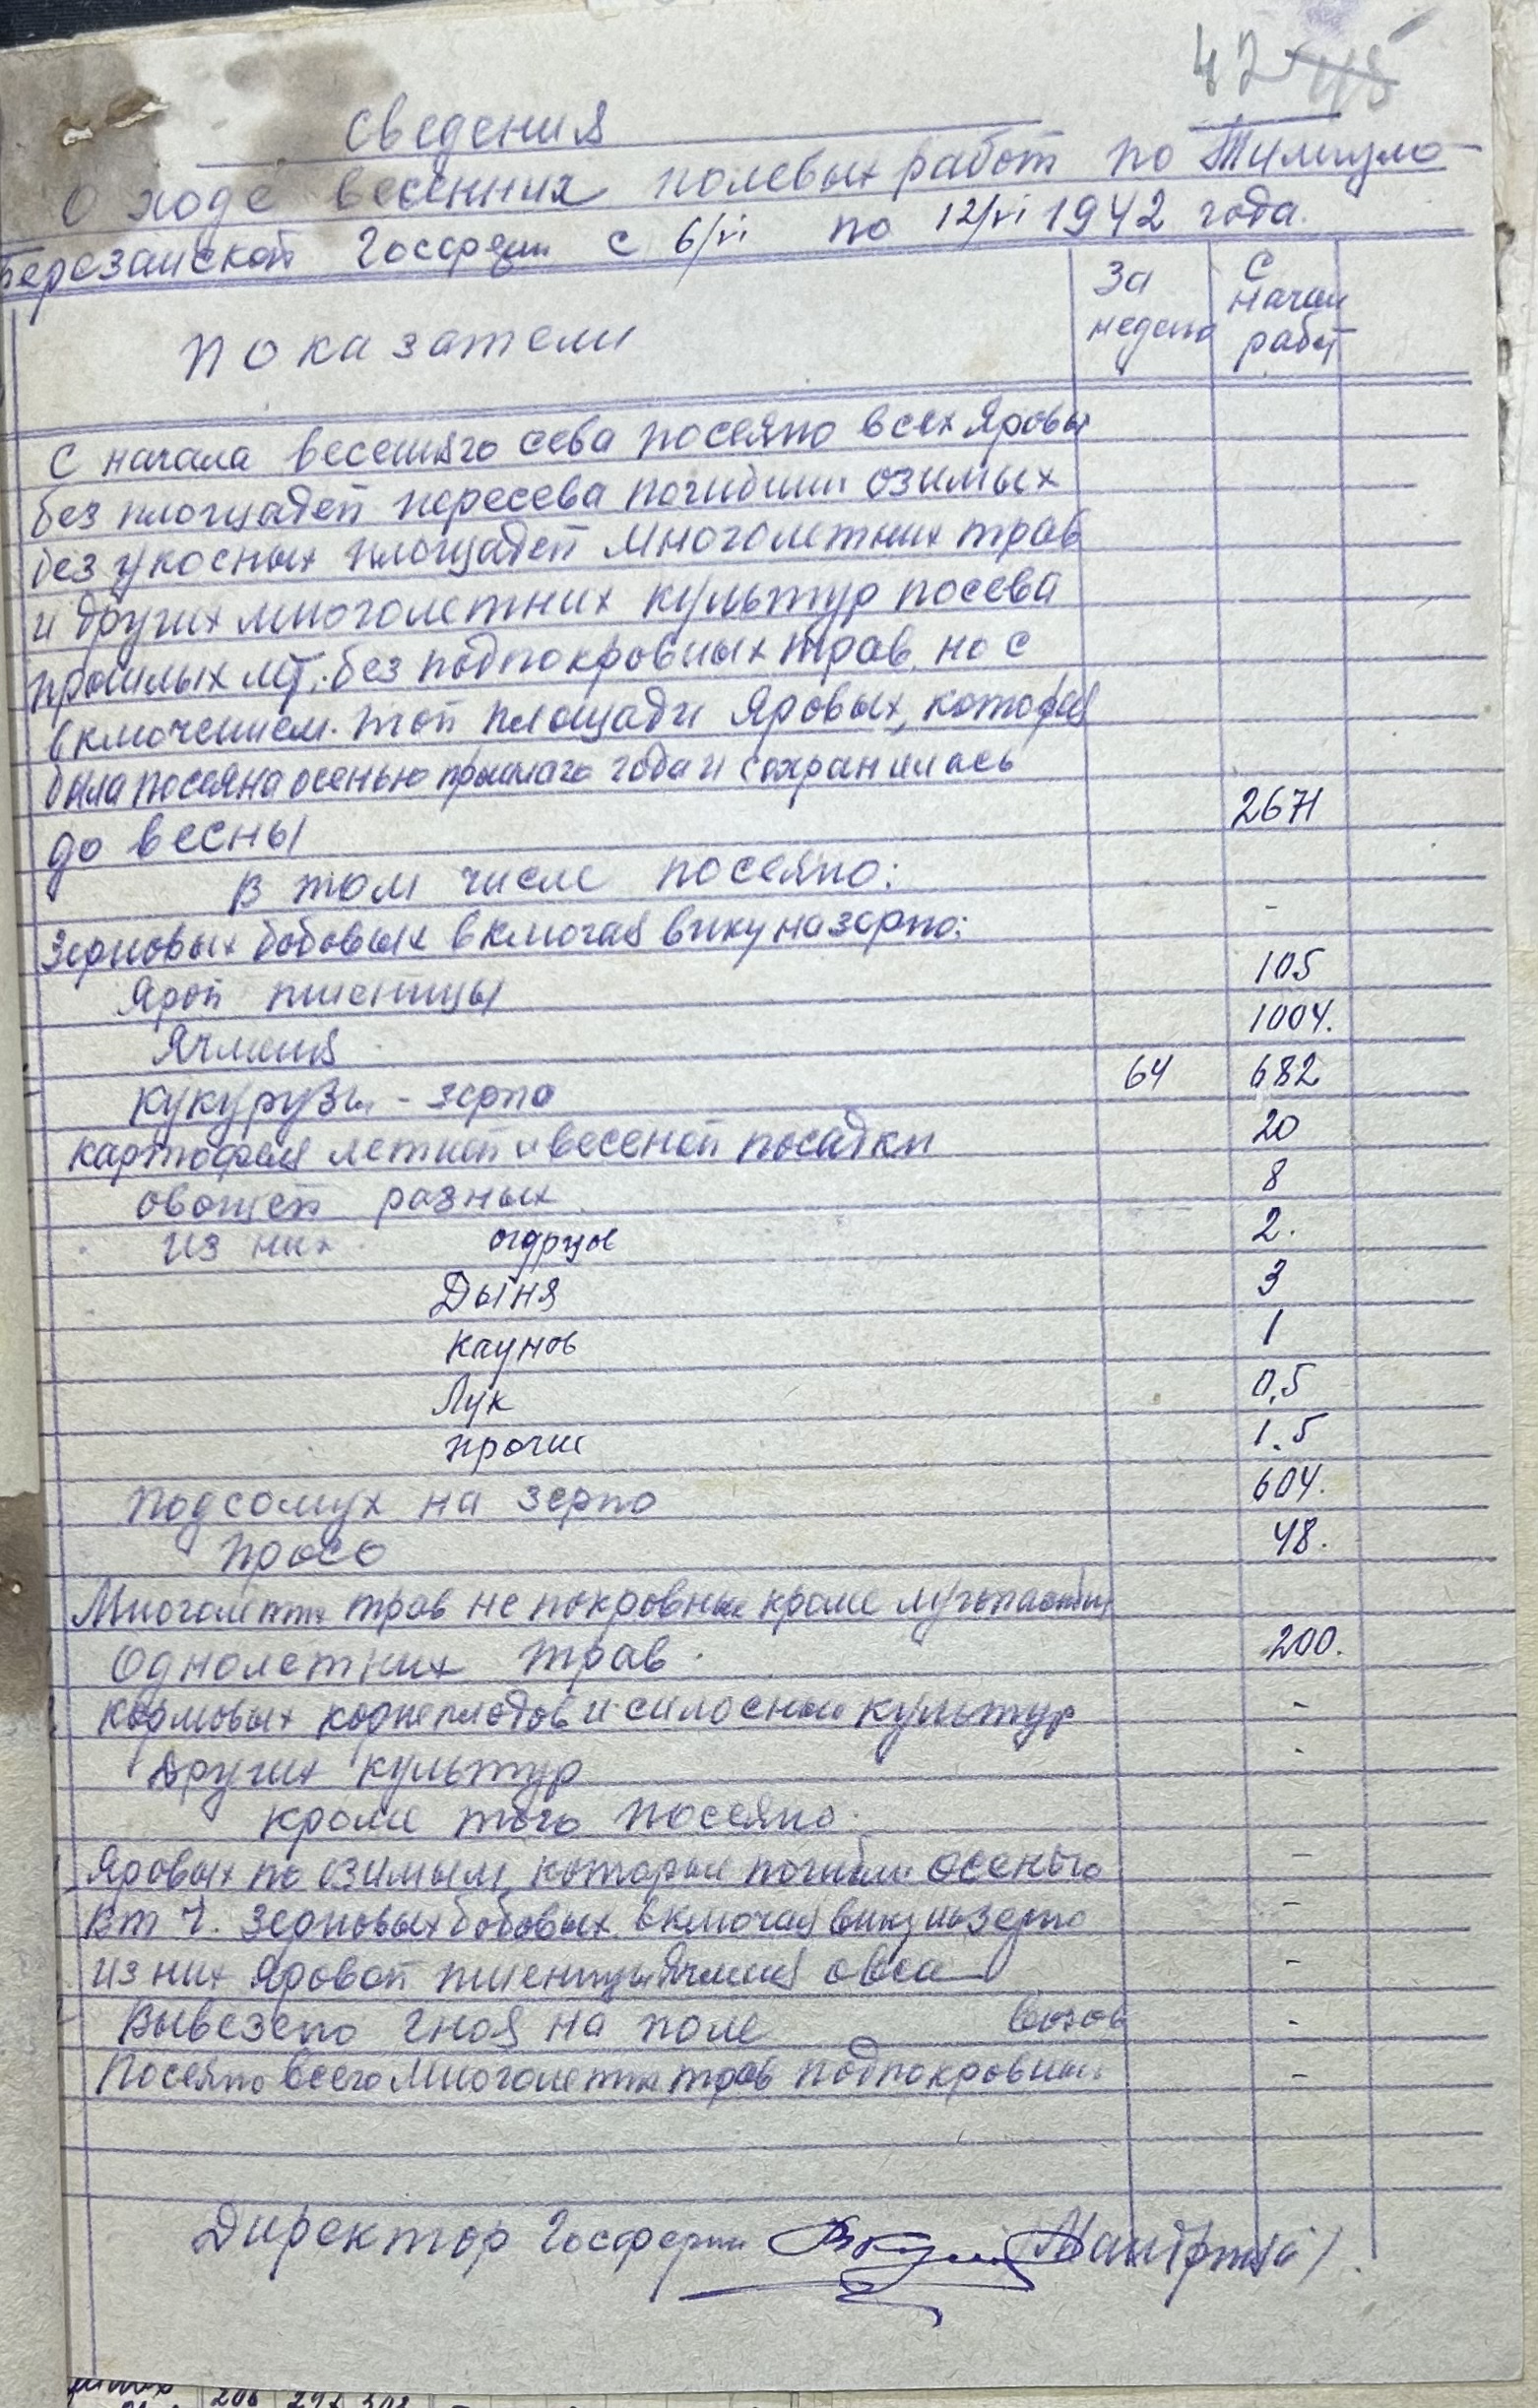 42 45
Сведения
О ходе весенних полевых работ по Тилигуло-
Березанской Госферм с 6/VI по 12/VI 1942 года.
Показатели
За неделю
С начал работ
С начала весеннего сева посеяно всех яровы
без площадей пересева погибших озимых
без укосных площадей многолетних трав
и других многолетних культур посева
прошлых лет, без подпокровных трав, но с
включением той площади яровых, которая
была посеяна осенью прошлаго года и сохранилась
до весны 2671
В том числе посеяно:
Зерновых бобовых включая вику на зерно: -
Ярой пшеницы 105
Ячменя 1004.
Кукурузы - зерно 64 682
Картофеля летней и весеной посадки 20
овощей разных 8
из них огурцов 2.
Дыня 3
Каунов 1
Лук 0,5
прочие 1.5
Подсолнух на зерно 604.
Просо 48.
Многолетних трав не покровных кроме
Однолетних трав. 200.
Кормовых корнеплодов и силосных культур -
Других культур -
Кроме того посеяно.
Яровых по озимым, которые погибли осенью -
В т ч. зерновых бобовых включая вику на зерно -
из них яровой пшеницы ячменя овса -
Вывезено гноя на поле возов -
Посеяно всего многолетних трав подпокровных -
Директор Госфермы
206 297 308